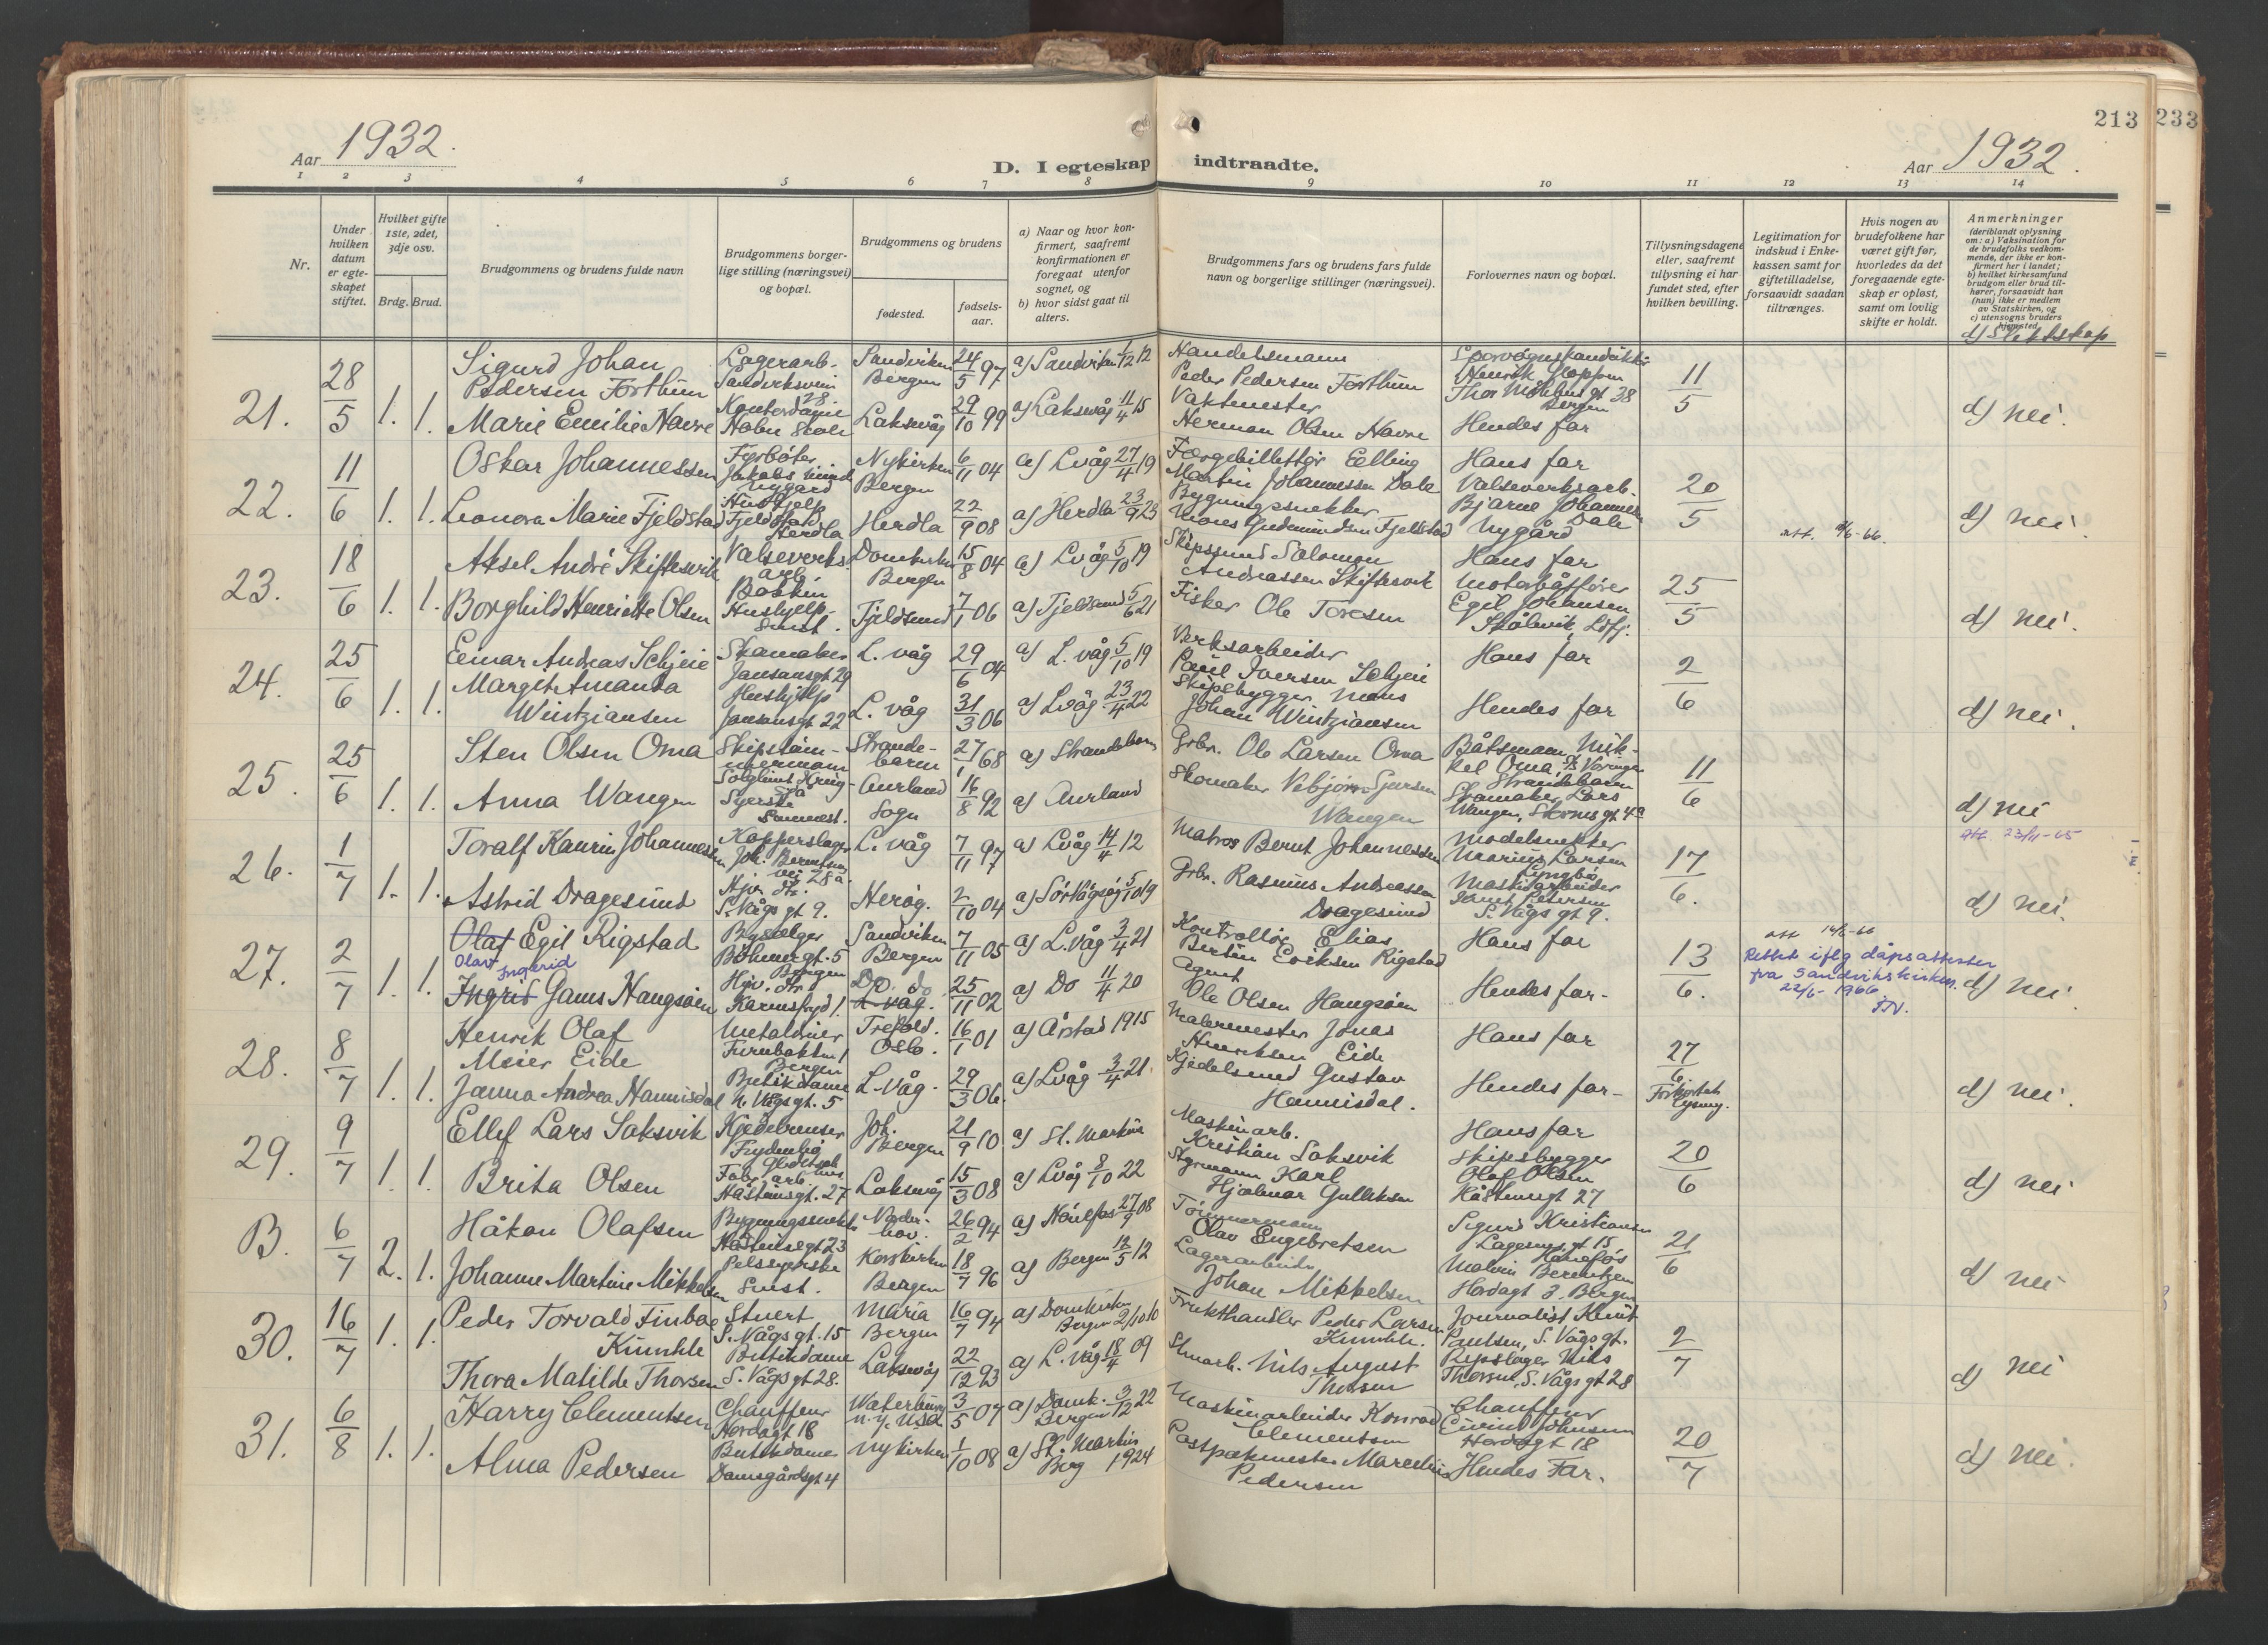 213
233
Aar 1932.
D. I egteskap indtraadte.
Aar 1932.
1 2 3 4 5 6 7 8 9 10 11 12 13 14
Nr.
Under hvilken datum er egteskapet stiftet.
Hvilket gifte 1ste, 2det, 3dje osv.
Brdg. Brud.
Brudgommens og brudens fulde navn
Brudgommens borgerlige stilling (næringsvei) og bopæl.
Brudgommens og brudens
fødested.
fødselsaar.
a) Naar og hvor konfirmert, saafremt konfirmationen er foregaat utenfor sognet, og
b) hvor sidst gaat til alters.
Brudgommens fars og brudens fars fulde navn og borgerlige stillinger (næringsvei).
Forlovernes navn og bopæl.
Tillysningsdagene eller, saafremt tillysning ei har fundet sted, efter hvilken bevilling.
Legitimation for indskud i Enkekassen samt for giftetilladelse, forsaavidt saadan tiltrænges.
Hvis nogen av brudefolkene har været gift før, hvorledes da det foregaaende egteskap er opløst, samt om lovlig skifte er holdt.
Anmerkninger
(deriblandt oplysning om: a) Vaksination for de brudefolks vedkommende, der ikke er konfirmert her i landet; b) hvilket kirkesamfund brudgom eller brud tilhører, forsaavidt han (hun) ikke er medlem av Statskirken, og c) utensogns bruders hjemsted.
d) Slektskap
21. 28/5 1. 1.
Sigurd Johan Pedersen Forthun
Lagerarb. Sandviksveien 28.
Sandviken Bergen 24/5 97 a) Sandviken 1/12 12
Handelsmann Peder Pedersen Forthun
Henrik Gloppen Thor Møhlens gt 38 Bergen
11/5
Marie Emilie Navre
Kontordame
Laksevåg 29/10 99 a) Laksevåg 11/4 15
Vaktmester Herman Olsen Navre
Hendes far
d) nei.
22. 11/6 1. 1.
Oskar Johannessen
Fyrbøter Nygård
Nykirken Bergen 6/11 04 a) Lvåg 27/4 19
Færgebillettør Elling Martin Johannessen Dale
Hans far
20/5
Leonora Marie Fjeldstad
Hushjelp Fjeldstad Herdla
Herdla 22/9 08 a) Herdla 23/9 23
Bygningssnekker Mons Gudmundsen Fjeldstad
Valseverksarb. Bjarne Johannessen Dale Nygård
att. /6-66.
d) nei.
23. 18/6 1. 1.
Aksel André Skiftesvik
Valseverksarb.
Domkirken Bergen 15/8 04 a) Lvåg 5/10 19
Salomon Andreassen Skiftesvik
Hans far
25/5
Borghild Henriette Olsen
Hushjelp
Tjeldsund 7/1 06 a) Tjeldsund 5/6 21
Fisker Ole Toresen
Motorbåtfører Egil Johansen Skålevik,
d) nei.
24. 25/6 1. 1.
Einar Andreas Schjeie
Skomaker Jansonsgt 29
L. våg 29/6 04 a) L. våg 5/10 19
Verksarbeider Paul Iversen Schjeie
Hans far
2/6
Margit Amanda Wintziansen
Hushjelp Jansonsgt 22
L. våg 31/3 06 a) Lvåg 23/4 22
Skipsbygger Mons Johan Wintziansen
Hendes far
d) nei.
25. 25/6 1. 1.
Sten Olsen Oma
Skipstømmermann
Strandebarm 27/1 68 a) Strandebarm
Grbr. Ole Larsen Oma
Båtsmann Mikkel Oma, Strandebarm
11/6
Anna Wangen
Syerske
Aurland Sogn 16/8 92 a) Aurland
Skomaker Vebjørn Gjersen Wangen
Skomaker Lars Wangen,
d) nei
att. 23/11-65
26. 1/7 1. 1.
Toralf Kaurin Johannessen
Kopperslager Joh. Berntsens vei 28a.
L. våg 7/11 97 a) Lvåg 14/4 12
Matros Bernt Johannessen
Modelsnekker Marius Larsen Lyngbø
17/6.
Astrid Dragesund
Hjv. dtr. S. Vågs gt 9.
Herøy. 2/10 04 a) Sør Vågsøy 5/10 19
Grbr. Rasmus Andreassen Dragesund
Maskinarbeider Petersen S. Vågs gt 9.
d) nei.
27. 2/7 1. 1.
Olaf Egil Rigstad
Olav
Bøhmergt. 5 Bergen
Sandviken Bergen 7/11 05 a) L. våg 3/4 21
Kontrollør Elias Bertin Eriksen Rigstad
Hans far
13/6.
Ingerid
Ingrid Gams Haugsøen
Hjv. dtr. Karensfryd 1.
Do. do L. våg. 25/11 02 a) Do 11/4 20
Agent Ole Olsen Haugsøen
Hendes far.
att 14/6-66
Rettet iflg dåpsattester fra Sandvikskirken. 22/6-1966
d) nei.
28. 8/7 1. 1.
Henrik Olaf Meier Eide
Bergen
Trefold. Oslo. 16/1 01 a) Årstad 1915
Malermester Jonas Henriksen Eide
Hans far
27/6 Forkortet lysning.
Janna Andrea Hannisdal
Butikdame N. Vågsgt. 5
L. Våg. 29/3 06. a) Lvåg 3/4 21.
Kjedelsmed Gustav Hannisdal.
Hendes far.
d) nei.
29. 9/7 1. 1.
Ellef Lars Saksvik
Kjedelrenser Frydenbø
Joh. Bergen 21/9 10. a) St. Markus
Maskinarb. Kristian Saksvik
Hans far
20/6
Brita Olsen
Fabr. arb. Håsteinsgt. 27
Laksevåg 15/3 08 a) Lvåg 8/10 22
Styrmann Karl Hjalmar Gulliksen
Skipsbygger Olaf Olsen Håsteinsgt 27
d) nei
B. 6/7 2. 1.
Håkon Olafsen
Bygningssnekker Håsteinsgt 23
Norderhov. 26/2 94 a) Hønefos 27/9 08
Tømmermann Olav Engebretsen
Sigurd Kristiansen gt 15 Hønefos
21/6
Johanne Martine Mikkelsen
Pelssyerske
Korskirken Bergen 18/7 96 a) Bergen 12/5 12
Lagerarbeider Johan Mikkelsen
Malvin Berentzen Hordagt 3. Bergen
d) nei
30. 16/7 1. 1.
Peder Torvald Finboe Kinnhle
Stuert S. Vågs gt. 15
Maria Bergen 16/7 94 a) Domkirken Bergen 2/10 10
Frukthandler Peder Larsen
Journalist Knut Paulsen, S. Vågsgt.
2/7
Thora Matilde Thorsen
Butikdame S. Vågsgt 28.
Laksevåg 22/12 93 a) L. våg 18/4 09
Nils August Thorsen
Repslager Nils Thorsen, S. Vågsgt 28
d) nei
31. 6/8 1. 1.
Harry Clementsen
Chauffeur Hordagt 18
Waterbury N.Y. USA 3/5 07 a) Domk. Bergen 3/12 22
Maskinarbeider Konrad Clementsen
Chauffeur Johnsen Hordagt 18
20/7
Alma Pedersen
Butikdame Damsgårdsgt 4
Nykirken 1/10 08 a) St. Markus Berg 1924
Postpakmester Marcelius Pedersen
Hendes Far.
d) nei.